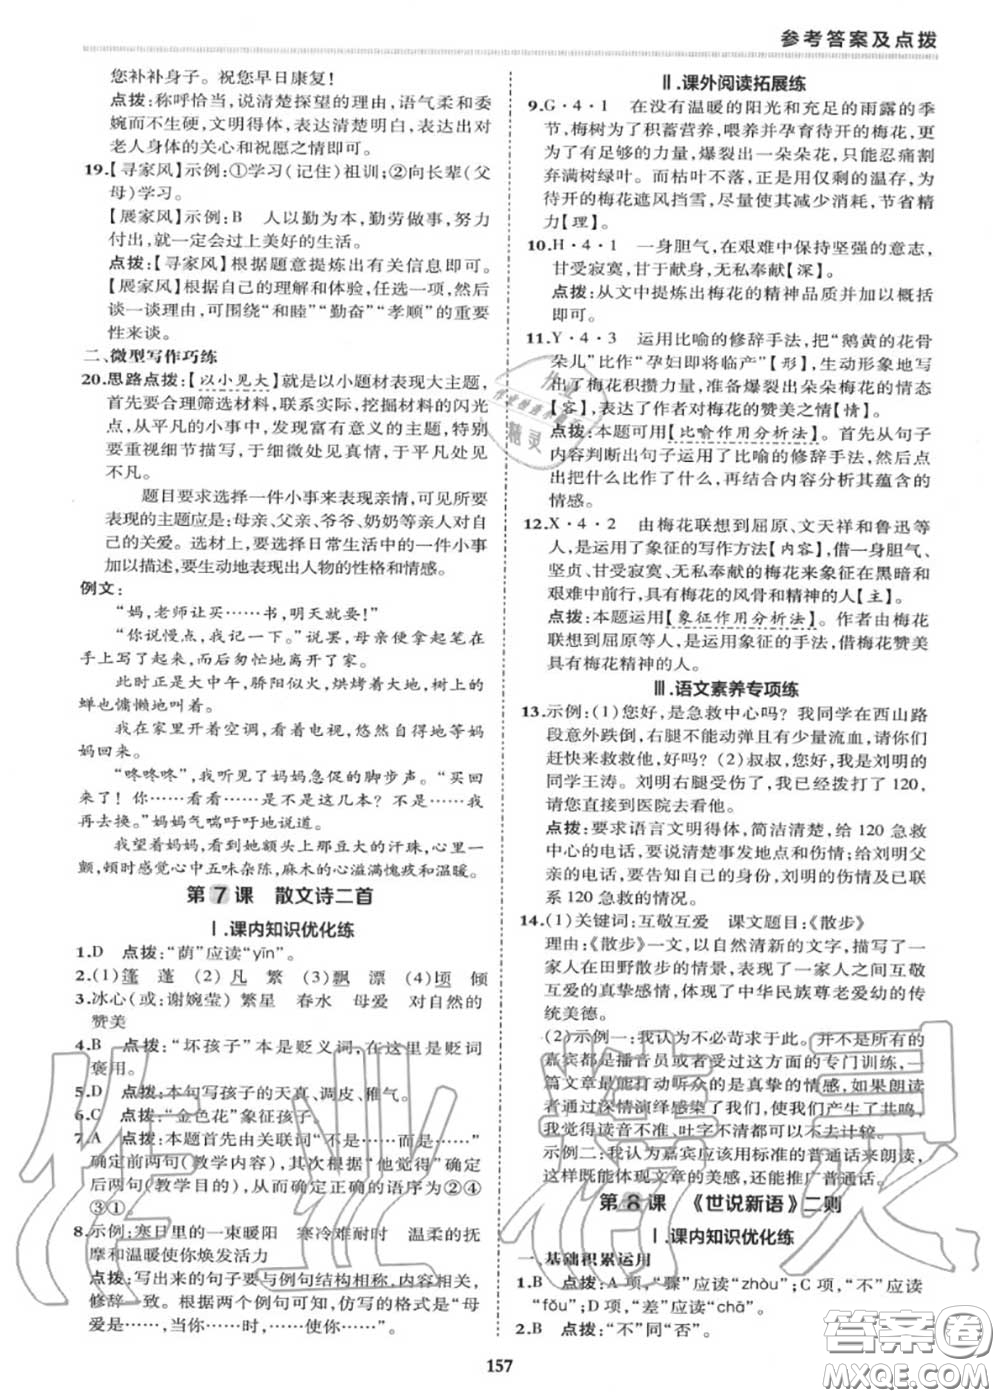 参考答案及点拨
您补补身子。祝您早日康复!
点拨:称呼恰当,说清楚探望的理由,语气柔和委
婉而不生硬,文明得体,表达清楚明白,表达出对
老人身体的关心和祝愿之情即可。
19.【寻家风】示例:①学习(记住)祖训;②向长辈(父
母)学习。
【展家风】示例:B 人以勤为本,勤劳做事,努力
付出,就一定会过上美好的生活。
点拨:【寻家风】根据题意提炼出有关信息即可。
【展家风】根据自己的理解和体验,任选一项,然后
谈一谈理由,可围绕“和睦”“勤奋”“孝顺”的重要
性来谈。
二、微型写作巧练
20.思路点拨:[以小见大]就是以小题材表现大主题,
首先要合理筛选材料,联系实际,挖掘材料的闪光
点,从平凡的小事中,发现富有意义的主题,特别
要重视细节描写,于细微处见真情,于平凡处见
不凡。
题目要求选择一件小事来表现亲情,可见所要
表现的主题应是:母亲、父亲、爷爷、奶奶等对我自
己的关爱。选材上,要选择日常生活中的一件小事
加以描述,要生动地表现出人物的性格和情感。
例文:
“妈,老师让买……书,明天就要!”
“你说慢点,我记一下。”说罢,母亲便拿起笔在
手上写了起来,而后匆忙地离开了家。
此时正是大中午,骄阳似火,烘烤着大地,树上的
蝉也慵懒地叫着。
我在家里开着空调,看着电视,悠然自得地等妈
妈回来。
“咚咚咚”,我听到了妈妈急促的脚步声。“买回
来了!你……看看……是不是这几本?不是……我
再去换。”妈妈气喘吁吁地说道。
我望着妈妈,看到她额头上那豆大的汗珠,心里一
颤,顿时感觉心中五味杂陈,麻木的心里充满愧疚和温暖。
第7课 散文诗二首
Ⅰ.课内知识优化练
1.D 点拨:“荫”应读“yīn”。
2.(1)篷 蓬 (2)凡 繁 (3)飘 漂 (4)顷 倾
3.冰心(或:谢婉莹) 繁星 春水 母爱 对自然的
赞美
4.B 点拨:“坏孩子”本是贬义词,在这里是贬词
褒用。
5.D 点拨:本句写孩子的天真、调皮、稚气。
6.C 点拨:“金色花”象征孩子。
7.A 点拨:本题首先由关联词“不是……而是……”
确定前两句(教学内容),根据“他觉得”确定
后两句(教学目的),从而确定正确的语序为②④
③①。
8.示例:寒日里的一束暖阳 寒冷难耐时 温柔的抚
摩和温暖使你焕发活力
点拨:写出来的句子要与例句结构相称,内容相关,
修辞一致。根据两个例句可知,仿写的格式是“母
爱是……,当你……时,……使你……”。
Ⅱ.课外阅读拓展练
9.G·4·1 在没有温暖的阳光和充足的雨露的季
节,梅树为了积蓄营养,喂养并孕育待开的梅花,为
了有足够的力量,爆裂出一朵朵花,只能忍痛割
弃满树绿叶。而枯叶不落,正是用仅剩的温存,为
待开的梅花遮风挡雪,使其减少消耗,节省精
力【理】。
10.H·4·1 一身胆气,在艰难中保持坚强的意志,
甘受寂寞,甘于献身,无私奉献【深】。
点拨:从文中提炼出梅花的精神品质并加以概括
即可。
11.Y·4·3 运用比喻的修辞手法,把“鹅黄的花骨
朵儿”比作“孕妇即将临产”【形】,生动形象地写
出了梅花积攒力量,准备爆裂出朵朵梅花的情态
【容】,表达了作者对梅花的赞美之情【情】。
点拨:本题可用[比喻作用分析法]。首先从句子
内容判断出句子运用了比喻的修辞手法,然后点
出把什么比作了什么,再结合内容分析其蕴含的
情感。
12.X·4·2 由梅花联想到屈原、文天祥和鲁迅等
人,是运用了象征的写作方法【内容】,借一身胆气、
坚贞、甘受寂寞、无私奉献的梅花来象征在黑暗和
艰难中前行,具有梅花的风骨和精神的人【主】。
点拨:本题运用[象征作用分析法]。作者由梅花
联想到屈原等人,是运用象征的手法,借梅花赞美
具有梅花精神的人。
Ⅲ.语文素养专项练
13.示例:(1)您好,是急救中心吗?我同学在西山路
段意外跌倒,右腿不能动弹且有少量流血,请你们
赶快来救救他,好吗?(2)叔叔,您好,我是刘明的
同学王涛。刘明右腿受伤了,我已经拨打了120,
请您直接到医院去看他。
点拨:要求语言文明得体,简洁清楚,给120急救
中心的电话,要说清楚事发地点和伤情;给刘明父
亲的电话,要告知自己的身份,刘明的伤情以及已
联系120急救的情况。
14.(1)关键词:互敬互爱 课文题目:《散步》
理由:《散步》一文,以自然清新的文字,描写了一
家人在田野散步的情景,表现了一家人之间互敬
互爱的真挚感情,体现了中华民族尊老爱幼的传
统美德。
(2)示例一:我认为不必苛求于此。并不是所有的
嘉宾都是播音员或接受过这方面的专门训练,一
篇文章最能打动听众的是真挚的情感,如果朗读
者通过深情演绎感染了我们,使我们产生了共鸣,
我觉得读音不准、吐字不清都可以不去计较。
示例二:我认为嘉宾应该用标准的普通话来朗读,
这样既能体现文章的美感,还能推广普通话。
第8课 《世说新语》二则
Ⅰ.课内知识优化练
一、基础积累运用
1.B 点拨:A项,“骤”应读“zhòu”;C项,“不”应读
“fǒu”;D项,“差”应读“chā”。
2.B 点拨:“不”同“否”。
157
作业精灵
答案圈
MXQE.COM